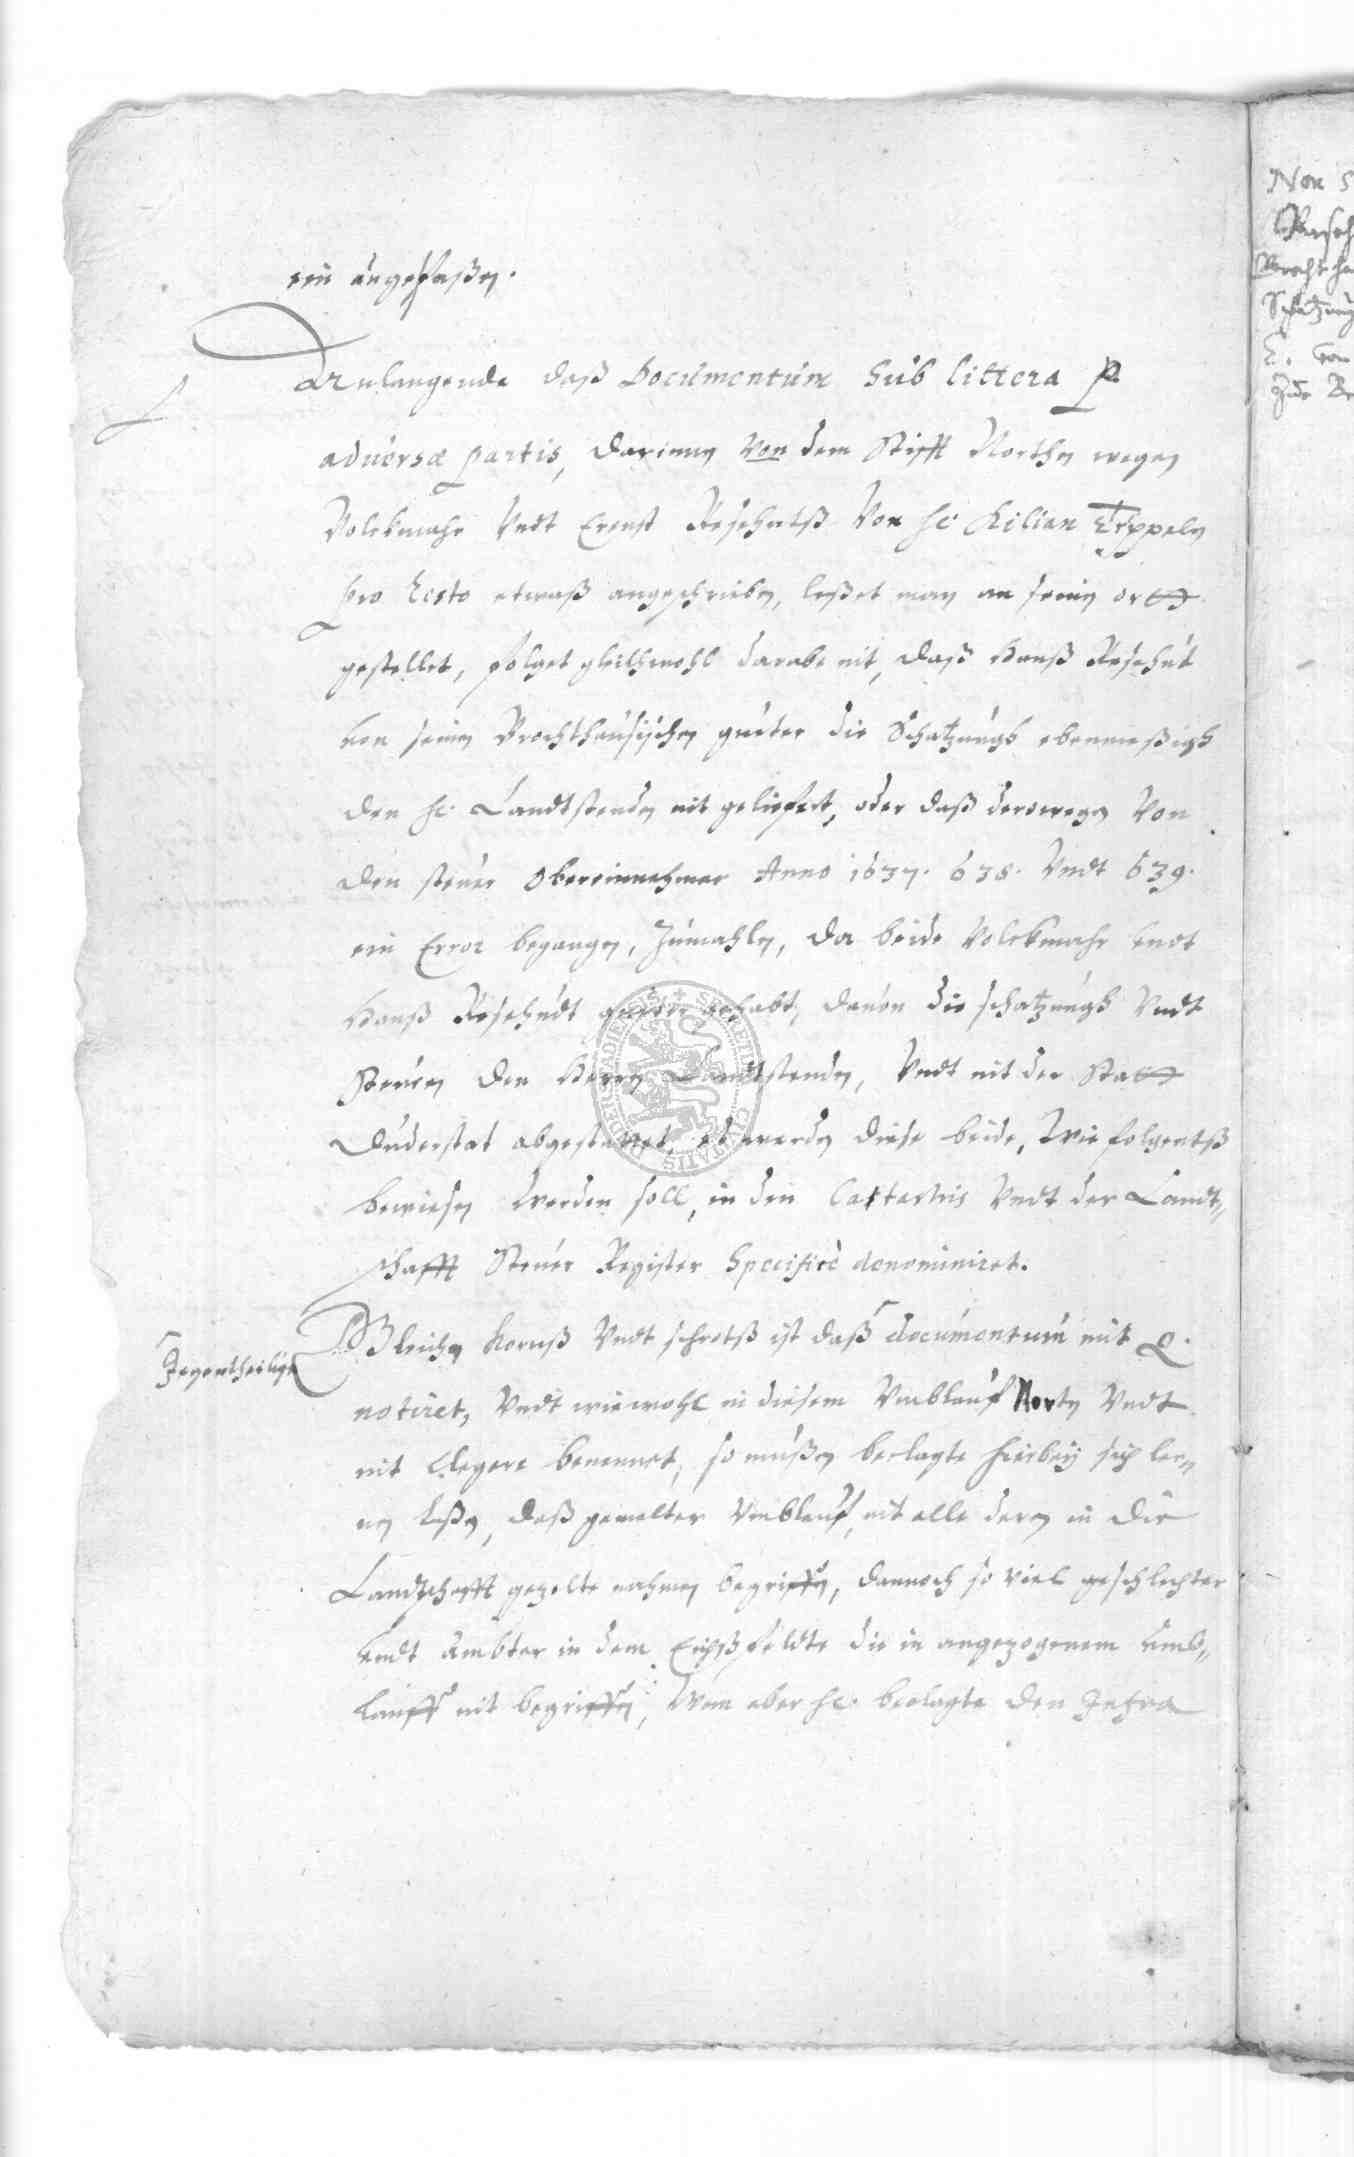 ein angesaßen.
Anlangende daß Documentum sub littera P.
adversæ partis, darinnen von dem Stifft Northen wegen
Volckmahr Vndt Ernst Reschuts Von hl: Kilian Teppeln
pro Resto etwaß angeschrieben, leßet man an seinen ortt
gestellet, folget gleichwohl darabe nit, daß Hanß Reschut
von seinen Brochthausischen gueter die Schatzungh ebenmeßigh
den hl: Landtstenden nit geliefert, oder daß derowegen Von
den steuer Obereinnehmer Anno 1637. 638. Vndt 639.
ein Error begangen, Zumahlen, da beide Volckmahr vndt
Hanß Reschudt gueter gehabt, davon die schatzungh Vndt
Steuren den Herrn Landtstenden, Vndt nit der Statt
Duderstat abgestattet, werden diese beide, Wie folgentß
bewiesen werden soll, in den Catastris Vndt der Landt„
schafft Steuer Register Specificè denominiret.
Gleichen kornß Vndt schrotß ist daß documentum mit Q.
Jegentheiligh
notiret, Vndt wiewohl in diesem Vmblauf Nortten Vndt
nit Clegere benennet, so müßen beclagte hierbey sich ler„
nen laßen, daß gemelter Vmblauf, nit alle deren in die
Landtschafft gezelte nahmen begriffen, dannoch so viel geschlechter
vndt ämbter in dem Eichßfeldte die in angezogenem Vmb„
lauff nit begriffen, Wan aber hl: beclagte den
Non